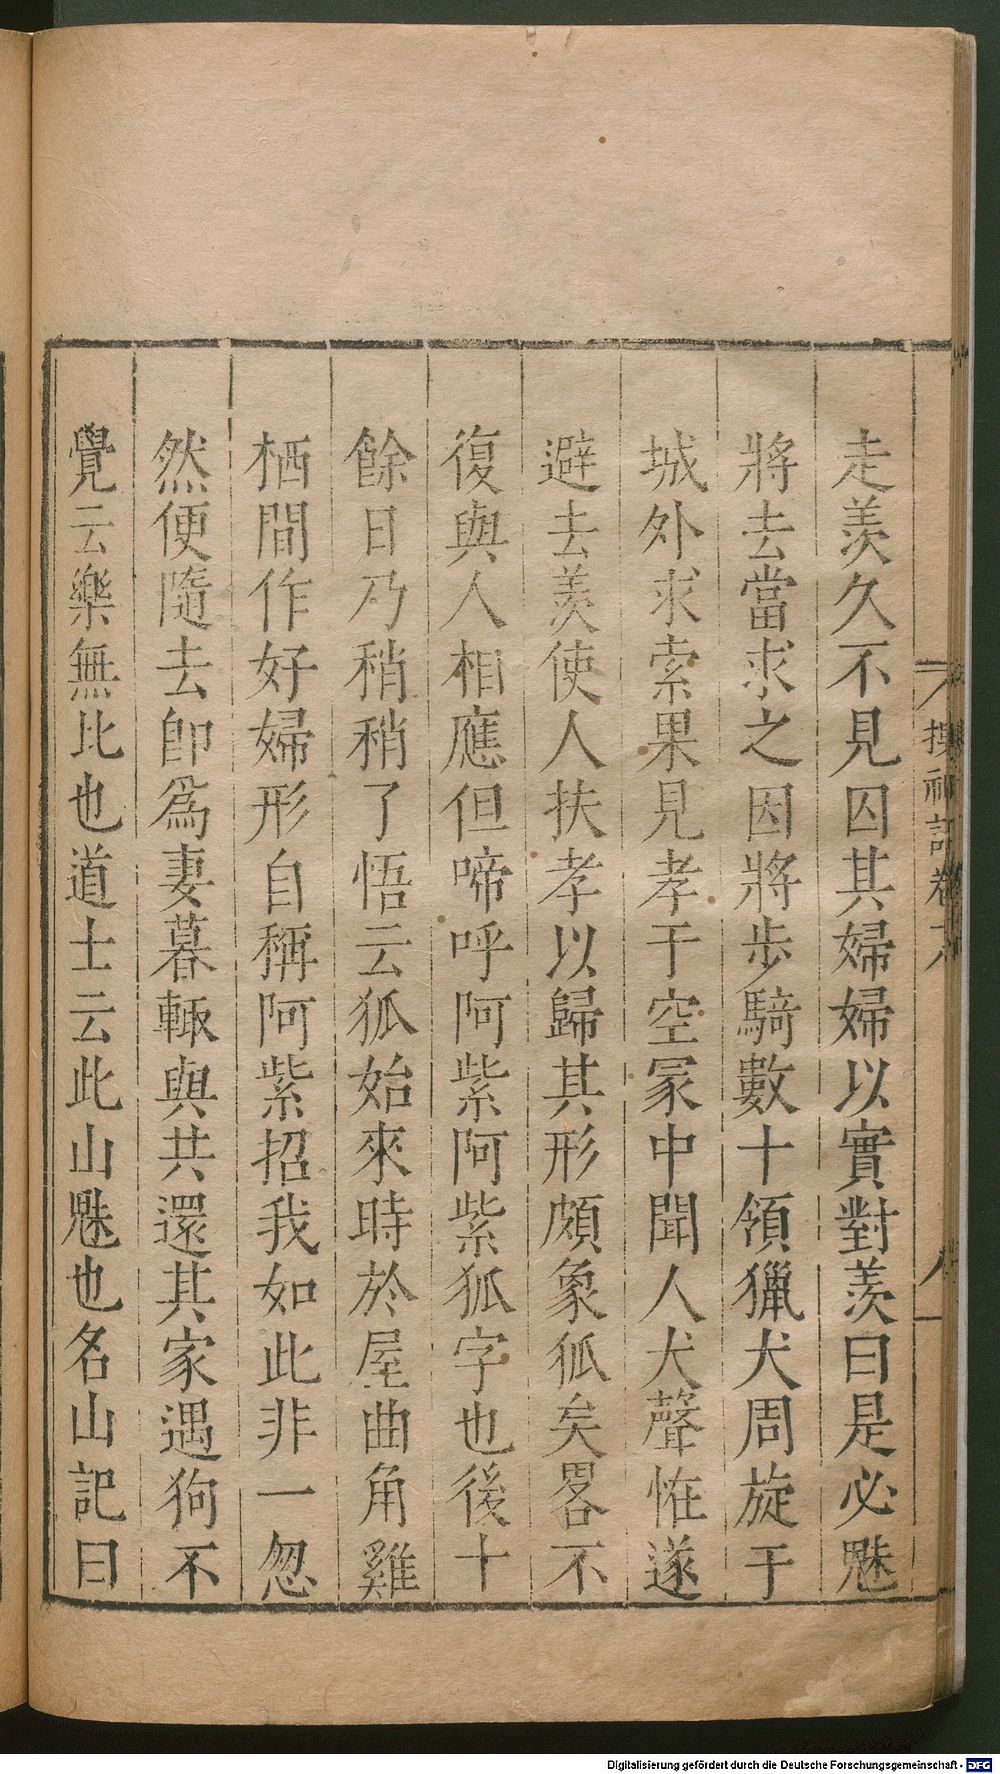 走羨久不見囚其婦婦以實對羨曰是必魅
將去當求之因將步騎數十領獵犬周旋于
城外求索果見孝于空冡中聞人犬聲恠遂
避去羨使人扶孝以歸其形頗象狐矣畧不
復與人相應但啼呼阿紫阿紫狐字也後十
餘日乃稍稍了悟云狐始來時於屋曲角雞
栖間作好婦形自稱阿紫招我如此非一忽
然便隨去卽爲妻暮輙與共還其家遇狗不
覺云樂無比也道士云此山魅也名山記曰
Digitalisierung gefördert durch die Deutsche Forschungsgemeinschaft - DFG